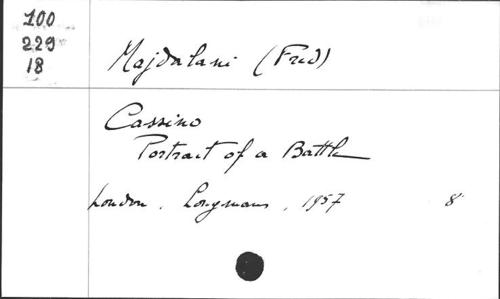 100
229
18
Majdalani (Fred)
Cassino
Portrait of a Battle
London, Longmans, 1957 8°